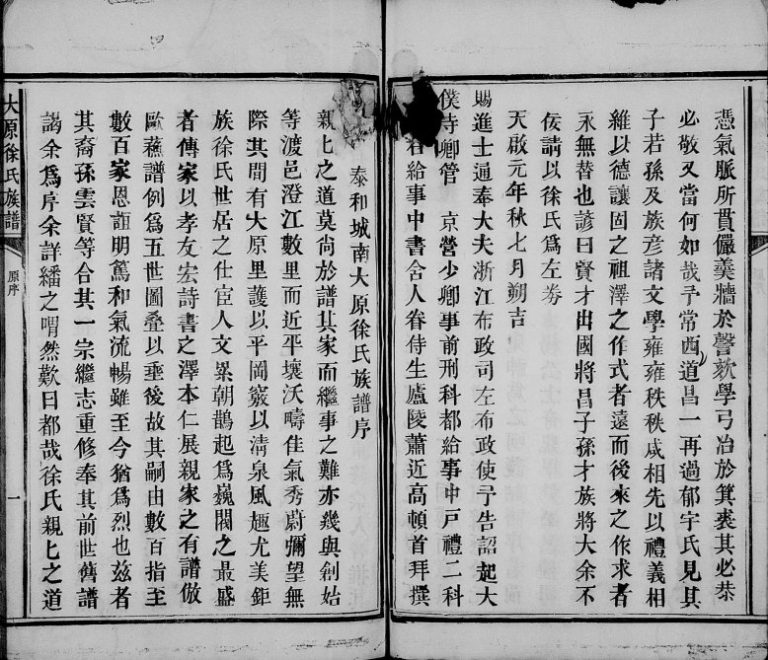 憑氣脈所貫儼羹牆於謦欬學弓冶於箕裘其必恭
必敬又當何如哉予常西道昌一再過郁宇氏見其
子若孫及族彥諸文學雍雍秩秩咸相先以禮義相
維以德讓固之祖澤之作式者遠而後來之作求者
永無替也諺曰賢才出國將昌子孫才族將大余不
佞請以徐氏為左券
天啟元年秋七月朔吉
賜進士通奉大夫浙江布政司左布政使予告詔起大
僕寺卿管 京營少卿事前刑科都給事中戶禮二科
給事中書舍人眷侍生廬陵蕭近高頓首拜撰
泰和城南大原徐氏族譜序
親上之道莫尚於譜其家而繼事之難亦幾與創始
等渡邑澄江數里而近平壤沃疇佳氣秀蔚彌望無
際其間有大原里護以平岡竅以清泉風趣尤美鉅
族徐氏世居之仕宦人文累朝鵲起為巍閥之最盛
者傳家以孝友宏詩書之澤本仁展親家之有譜倣
歐蘇譜例為五世圖叠以垂後故其嗣由數百指至
數百家恩誼明篤和氣流暢雖至今猶為烈也茲者
其裔孫雲賢等合其一宗繼志重修奉其前世舊譜
謁余為序余詳繙之喟然歎曰都哉徐氏親上之道
大原徐氏族譜
原序
一